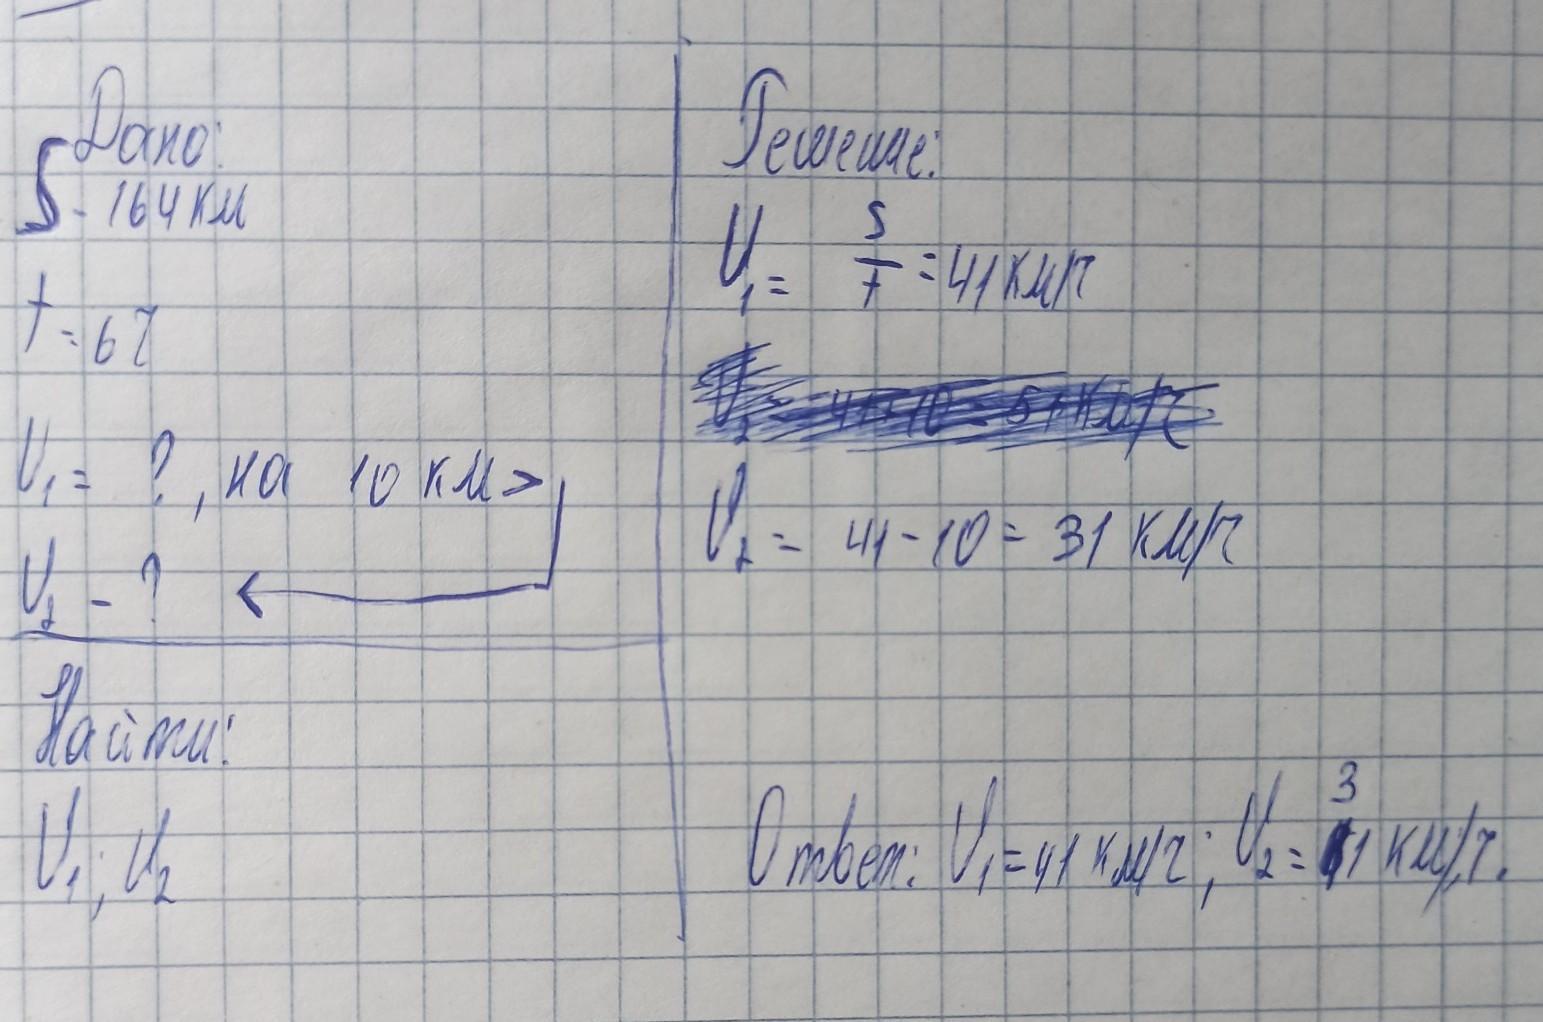 Дано:
S - 164 км
t = 6 ч
V₁ = ?, на 10 км >
V₂ - ?
Найти:
V₁; V₂
Решение:
V₁ = S/t = 41 км/ч
V₂ = 41 - 10 = 31 км/ч
Ответ: V₁ = 41 км/ч; V₂ = 31 км/ч.